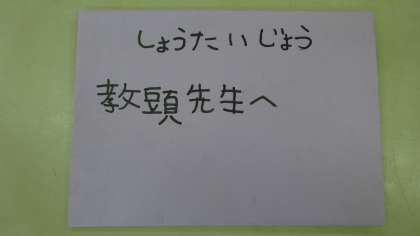 しょうたいじょう
教頭先生へ